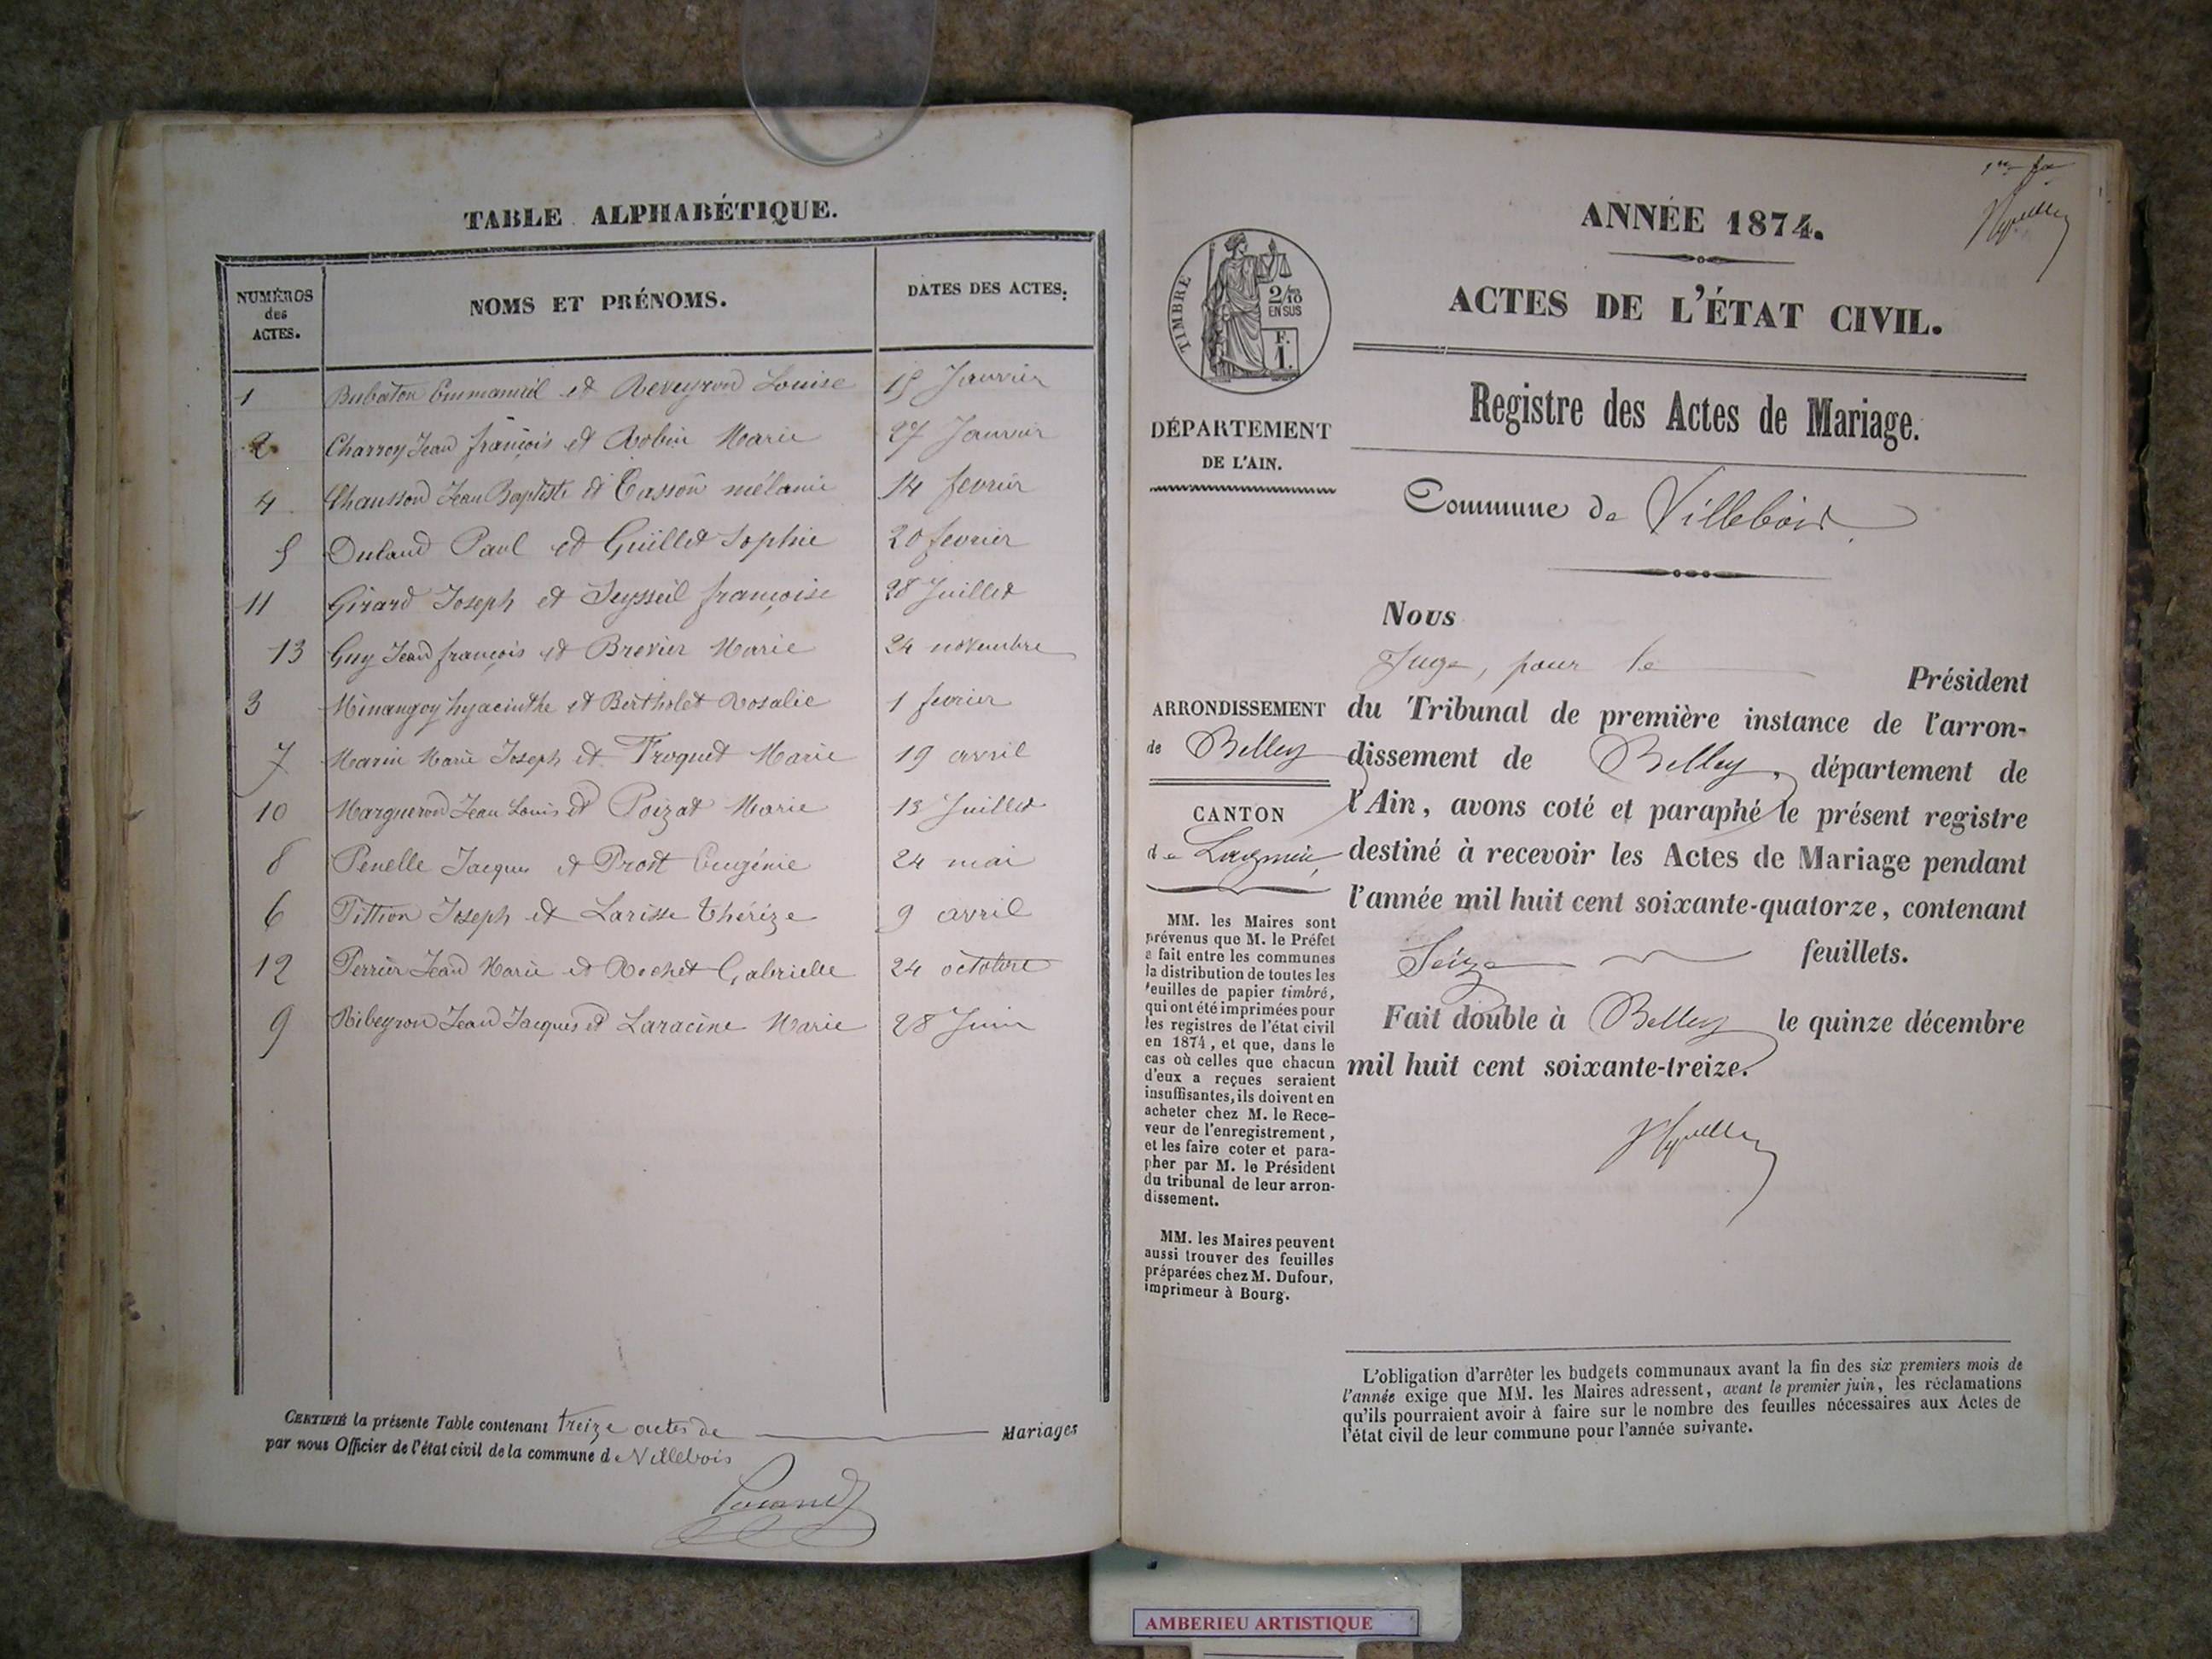 TABLE ALPHABÉTIQUE.
NUMÉROS des ACTES. NOMS ET PRÉNOMS. DATES DES ACTES:
1 Bubaton Emmanuel et Reveyron Louise 15 Janvier
2 Charroy Jean françois et Robin Marie 27 Janvier
4 Chausson Jean Baptiste et Casson mélanie 14 fevrier
5 Duland Paul et Guillet Sophie 20 fevrier
11 Girard Joseph et Seysseil françoise 28 Juillet
13 Guy Jean françois et Brevier Marie 24 novembre
3 Minangoy hyacinthe et Bertholet Rosalie 1 fevrier
7 Marin Marie Joseph et Troquet Marie 19 avril
10 Margueron Jean Louis et Poizat Marie 13 Juillet
8 Penelle Jacques et Prost Eugénie 24 mai
6 Pittion Joseph et Larisse thérèze 9 avril
12 Perrier Jean Marie et Rochet Gabrielle 24 octobre
9 Ribeyron Jean Jacques et Laracine Marie 28 Juin
CERTIFIÉ la présente Table contenant treize actes de Mariages
par nous Officier de l'état civil de la commune de Villebois
ANNÉE 1874.
ACTES DE L'ÉTAT CIVIL.
Registre des Actes de Mariage.
Commune de Villebois
TIMBRE
2/10
EN SUS
F.
1.
DÉPARTEMENT
DE L'AIN.
ARRONDISSEMENT
de Belley
CANTON
de Lagnieu
MM. les Maires sont
prévenus que M. le Préfet
a fait entre les communes
la distribution de toutes les
feuilles de papier timbré,
qui ont été imprimées pour
les registres de l'état civil
en 1874, et que, dans le
cas où celles que chacun
d'eux a reçues seraient
insuffisantes, ils doivent en
acheter chez M. le Rece-
veur de l'enregistrement,
et les faire coter et para-
pher par M. le Président
du tribunal de leur arron-
dissement.
MM. les Maires peuvent
aussi trouver des feuilles
préparées chez M. Dufour,
imprimeur à Bourg.
Nous
Juge, pour le Président
du Tribunal de première instance de l'arron-
dissement de Belley, département de
l'Ain, avons coté et paraphé le présent registre
destiné à recevoir les Actes de Mariage pendant
l'année mil huit cent soixante-quatorze, contenant
Seize feuillets.
Fait double à Belley le quinze décembre
mil huit cent soixante-treize.
L'obligation d'arrêter les budgets communaux avant la fin des six premiers mois de
l'année exige que MM. les Maires adressent, avant le premier juin, les réclamations
qu'ils pourraient avoir à faire sur le nombre des feuilles nécessaires aux Actes de
l'état civil de leur commune pour l'année suivante.
AMBERIEU ARTISTIQUE